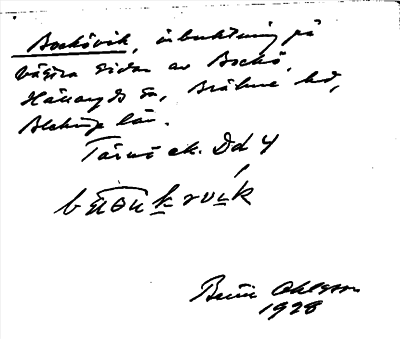 Bockövik, inbuktning på
västra sidan av Bockö,
Hällaryds sn, Bräkne hd,
Blekinge län.
Tärnö ek. Dd 4
Bror Ohlsson
1928